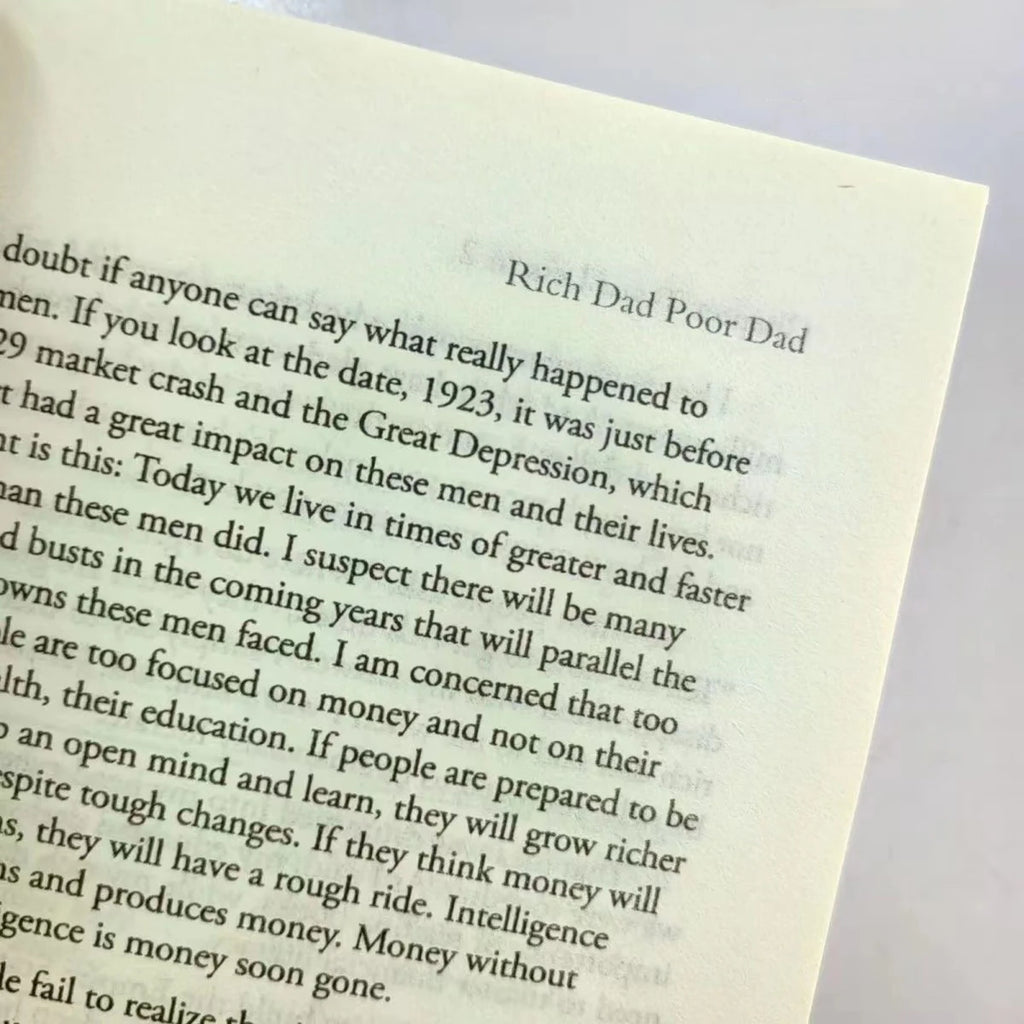 Rich Dad Poor Dad
doubt if anyone can say what really happened to
men. If you look at the date, 1923, it was just before
29 market crash and the Great Depression, which
had a great impact on these men and their lives.
is this: Today we live in times of greater and faster
these men did. I suspect there will be many
busts in the coming years that will parallel the
these men faced. I am concerned that too
are too focused on money and not on their
their education. If people are prepared to be
an open mind and learn, they will grow richer
tough changes. If they think money will
they will have a rough ride. Intelligence
and produces money. Money without
is money soon gone.
fail to realize